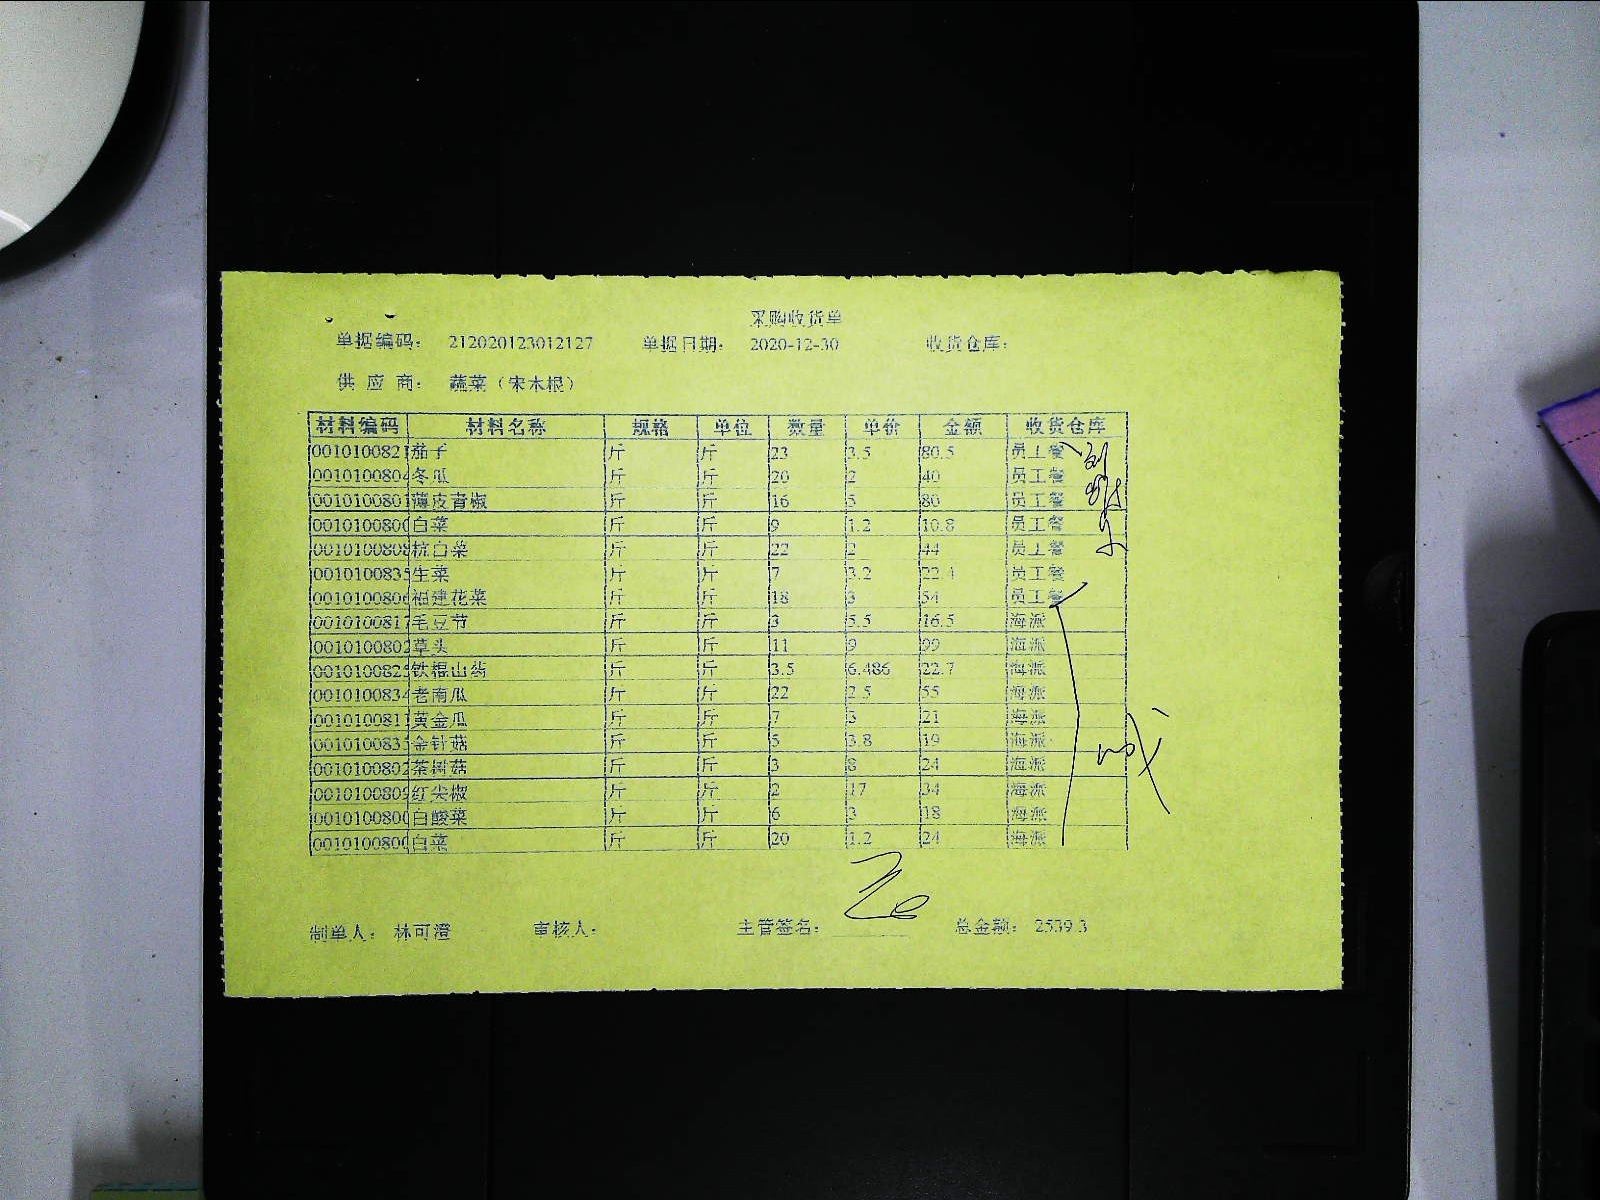 采购收货单
单据编码: 212020123012127 单据日期: 2020-12-30 收货仓库:
供 应 商: 蔬菜（宋木根）
材料编码 材料名称 规格 单位 数量 单价 金额 收货仓库
0010100821 茄子 斤 斤 23 3.5 80.5 员工餐
001010080 冬瓜 斤 斤 20 2 40 员工餐
0010100801 薄皮青椒 斤 斤 16 5 80 员工餐
001010080 白菜 斤 斤 9 1.2 10.8 员工餐
0010100808 杭白菜 斤 斤 22 2 44 员工餐
0010100835 生菜 斤 斤 7 3.2 22.4 员工餐
001010080 福建花菜 斤 斤 18 3 54 员工餐
0010100817 毛豆节 斤 斤 3 5.5 16.5 海派
0010100802 草头 斤 斤 11 9 99 海派
0010100825 铁棍山药 斤 斤 3.5 6.486 22.7 海派
0010100834 老南瓜 斤 斤 22 2.5 55 海派
0010100811 黄金瓜 斤 斤 7 3 21 海派
0010100835 金针菇 斤 斤 5 3.8 19 海派
0010100802 茶树菇 斤 斤 3 8 24 海派
0010100809 红尖椒 斤 斤 2 17 34 海派
001010080 白酸菜 斤 斤 6 3 18 海派
001010080 白菜 斤 斤 20 1.2 24 海派
制单人: 林可澄 审核人: 主管签名: 总金额: 2539.3